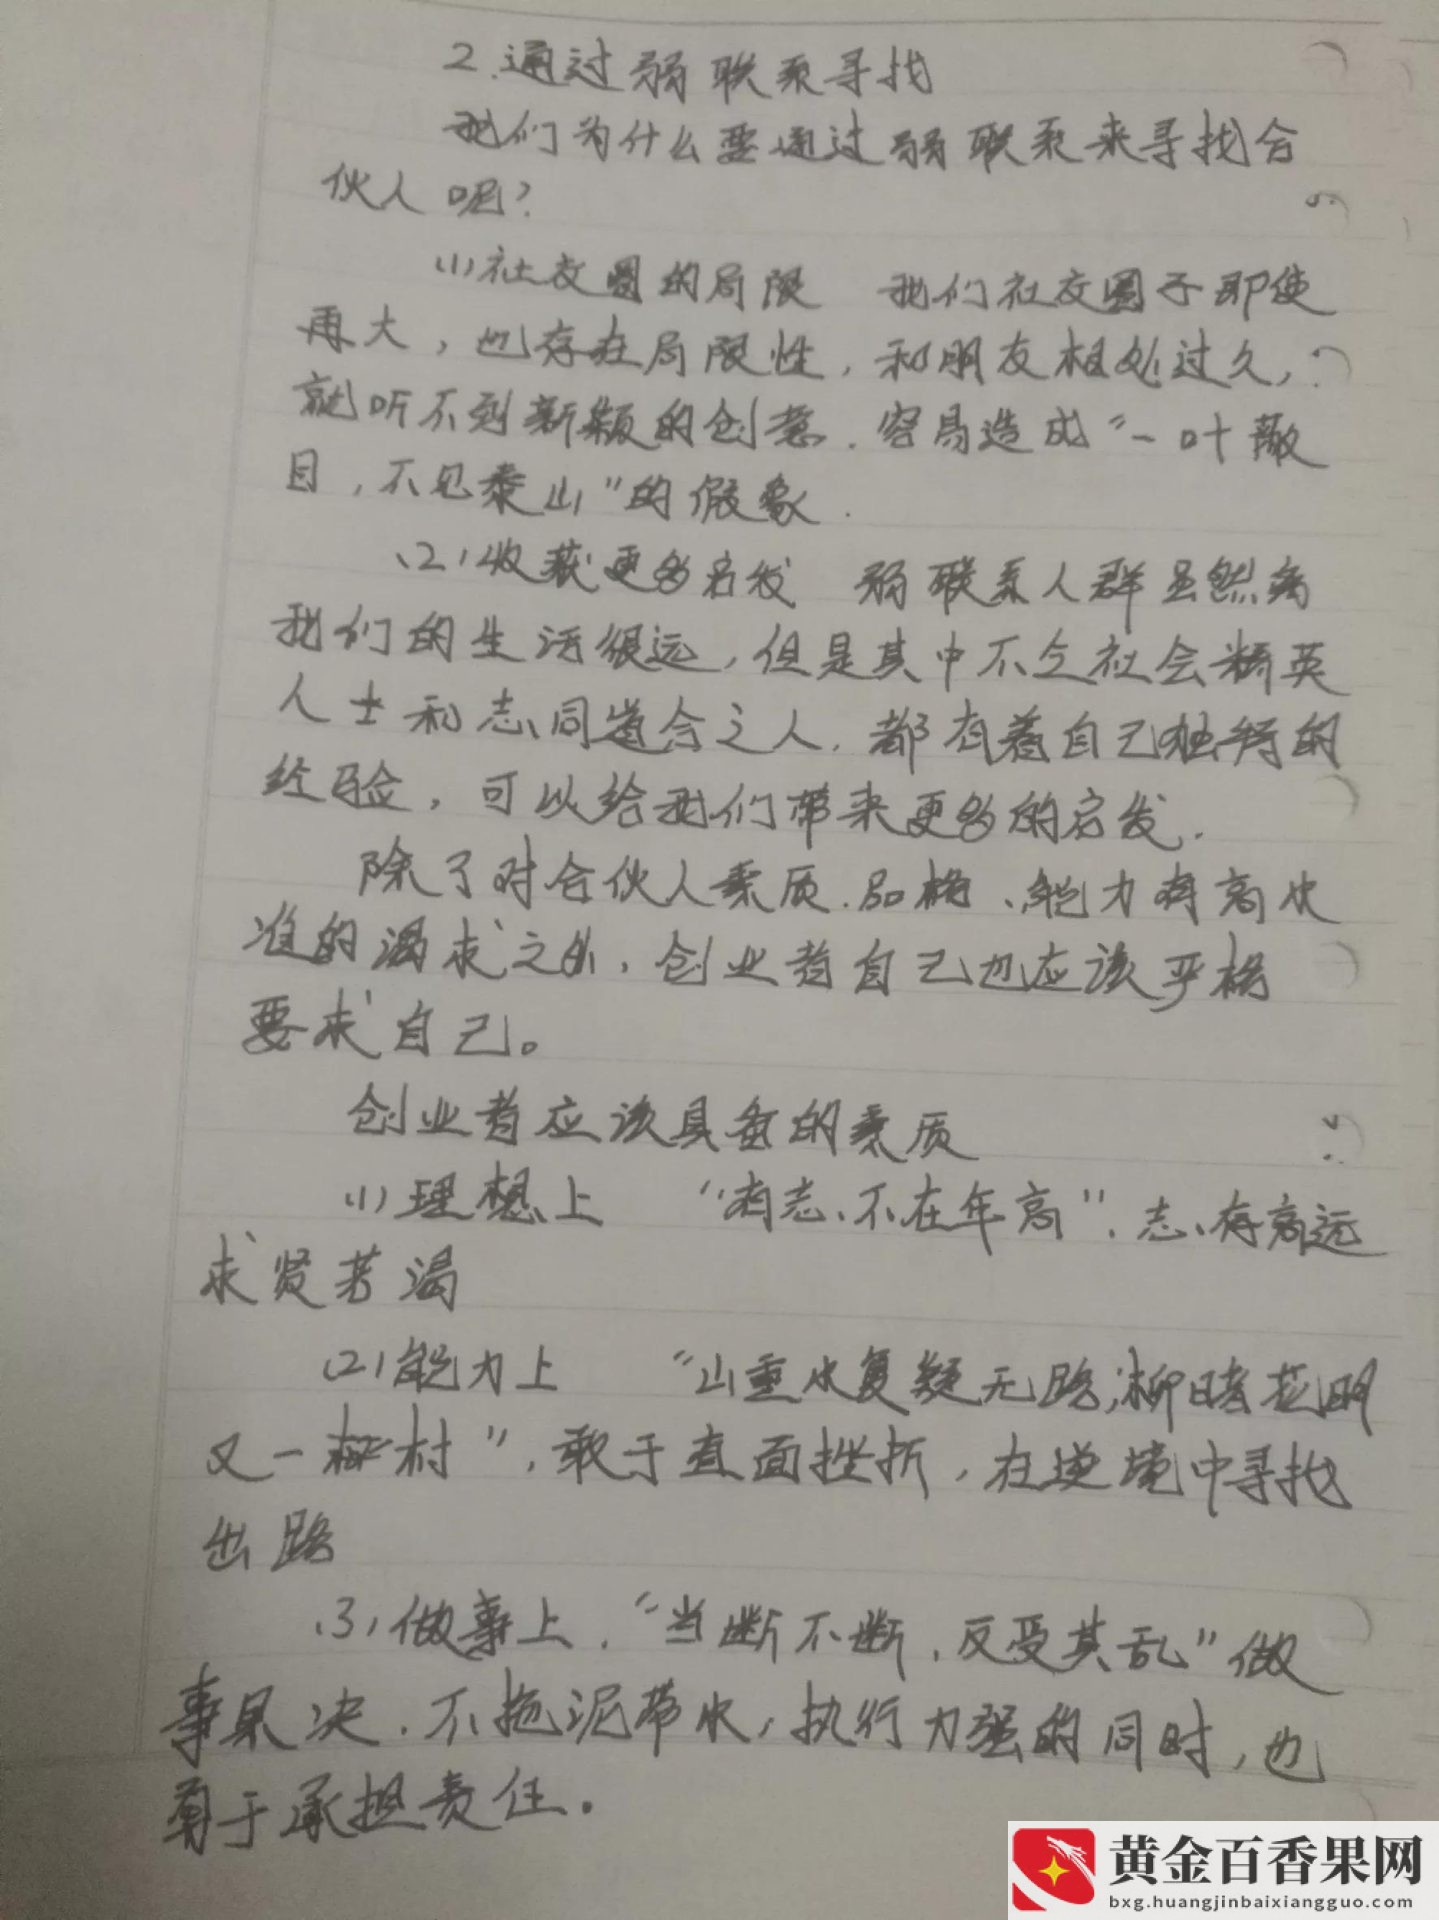 2.通过弱联系寻找
我们为什么要通过弱联系来寻找合
伙人呢?
(1)社交圈的局限 我们社交圈子即使
再大,也存在局限性,和朋友相处过久,
就听不到新颖的创意.容易造成“一叶蔽
目,不见泰山”的假象.
(2)收获更多启发 弱联系人群虽然离
我们的生活很远,但是其中不乏社会精英
人士和志同道合之人.都有着自己独特的
经验,可以给我们带来更多的启发.
除了对合伙人素质.品格、能力有高水
准的渴求之外,创业者自己也应该严格
要求自己。
创业者应该具备的素质
(1)理想上 “有志不在年高”.志存高远
求贤若渴
(2)能力上 “山重水复疑无路;柳暗花明
又一村”.敢于直面挫折,在逆境中寻找
出路
(3)做事上.“当断不断.反受其乱”做
事果决.不拖泥带水,执行力强的同时,也
于承担责任。
黄金百香果网
bxg.huangjinbaixiangguo.com